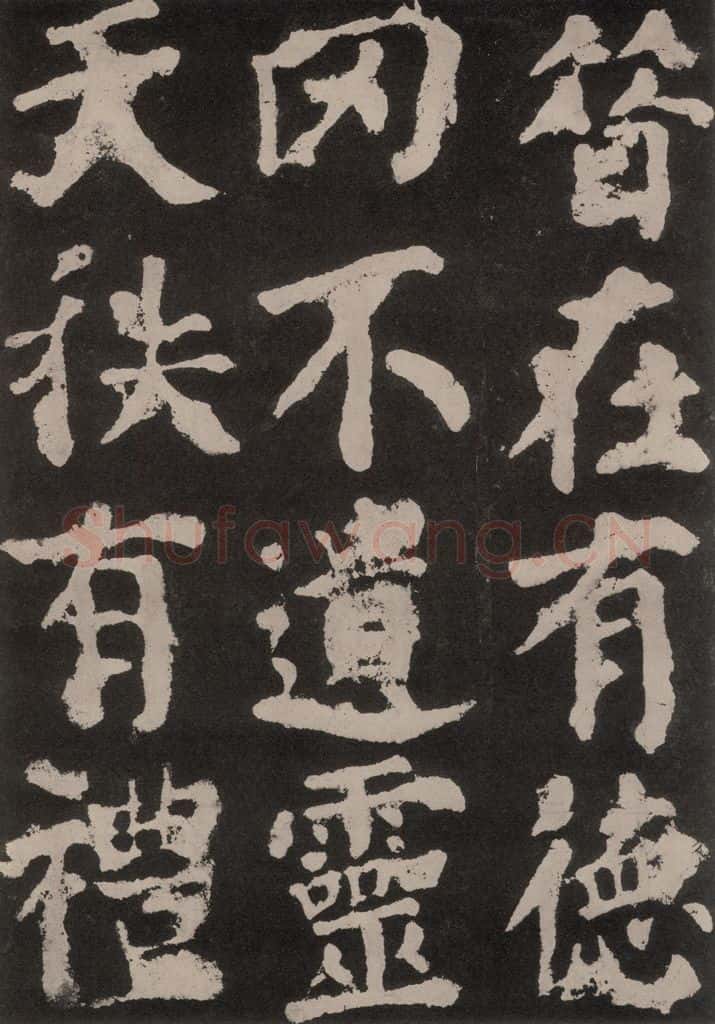 昔在有德
罔不遺靈
天秩有禮
Shufawang.CN